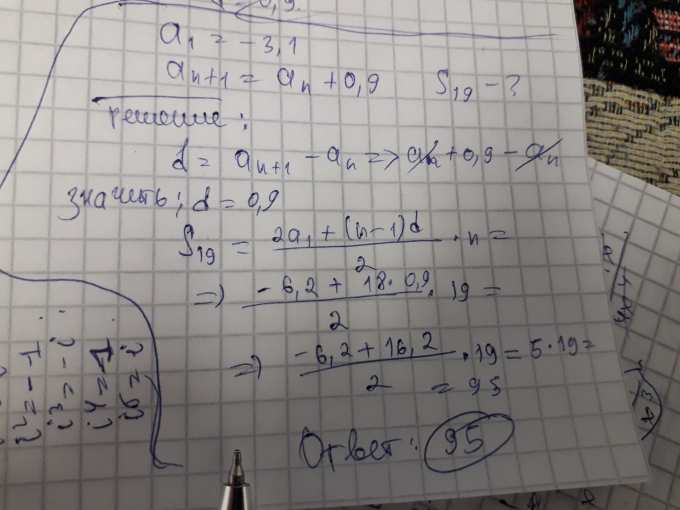 a₁ = -3,1
aₙ₊₁ = aₙ + 0,9 S₁₉ - ?
решение:
d = aₙ₊₁ - aₙ => aₙ + 0,9 - aₙ
значить; d = 0,9
S₁₉ = (2a₁ + (n-1)d)/2 · n =
=> (-6,2 + 18·0,9)/2 · 19 =
=> (-6,2 + 16,2)/2 · 19 = 5·19 =
= 95
Ответ: 95
i² = -1
i³ = -i
i⁴ = 1